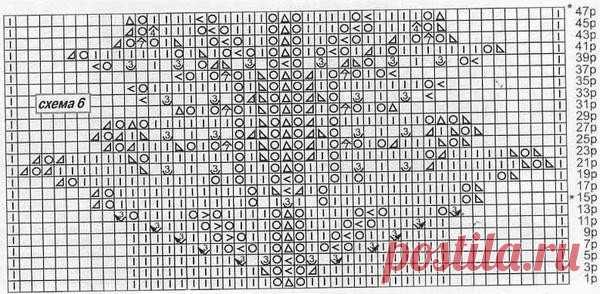 * 47р
45р
43р
41р
39р
37р
35р
33р
31р
29р
27р
25р
23р
21р
19р
17р
* 15р
13р
11р
9р
7р
5р
3р
1р
схема 6
postila.ru